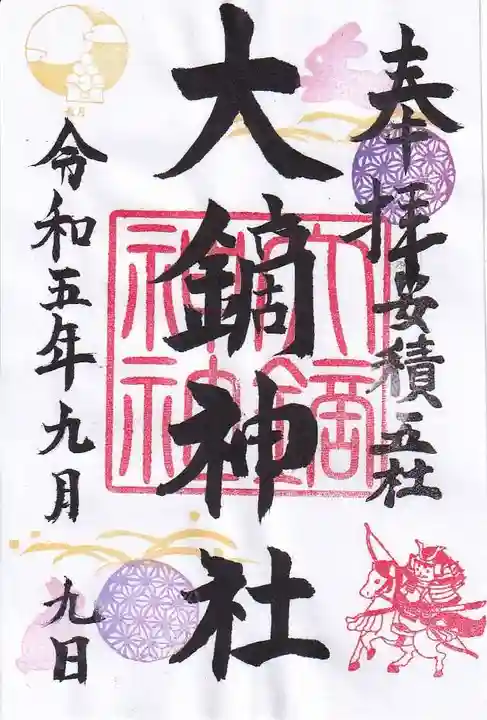 奉拝
安積五社
大鏑神社
大鏑
神社
令和五年九月
九日